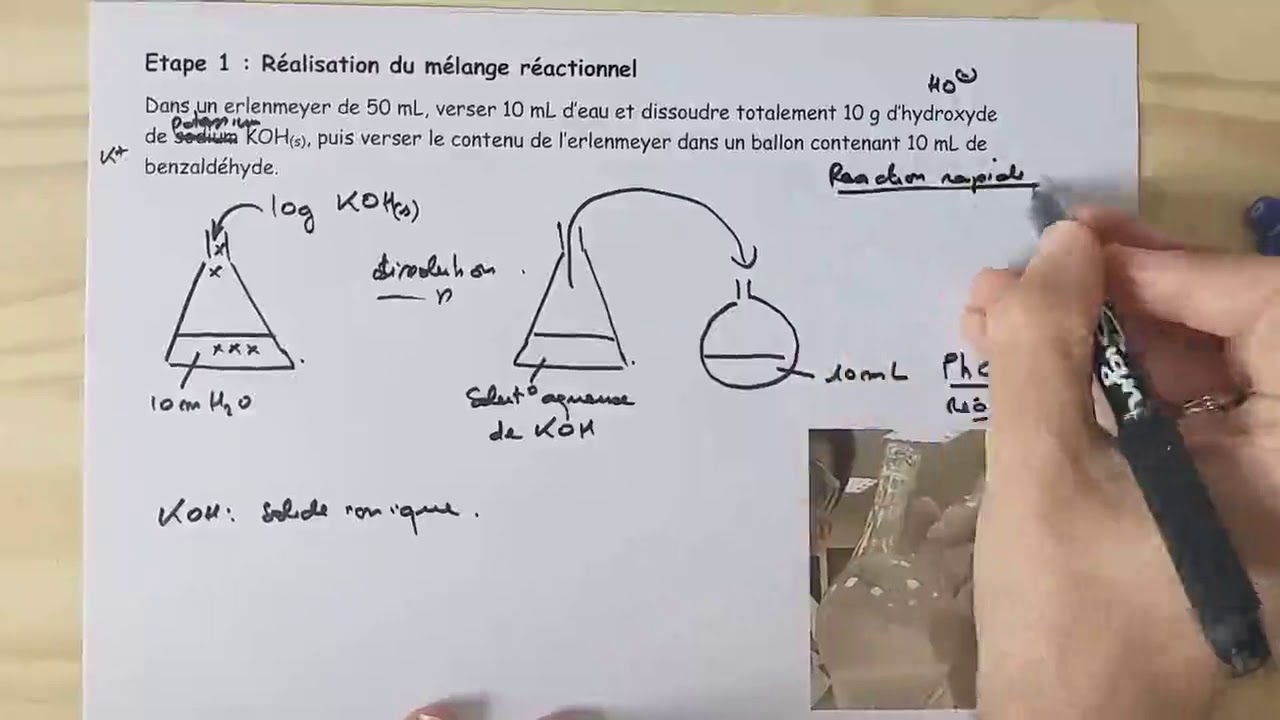 Etape 1 : Réalisation du mélange réactionnel
HO⊖
Dans un erlenmeyer de 50 mL, verser 10 mL d'eau et dissoudre totalement 10 g d'hydroxyde
potassium
de sodium KOH(s), puis verser le contenu de l'erlenmeyer dans un ballon contenant 10 mL de
K+
benzaldéhyde.
Reaction rapide
10g KOH(s)
dissolution
10mL
10 cm H2O
Solut° aqueuse
de KOH
KOH: Solide ionique.